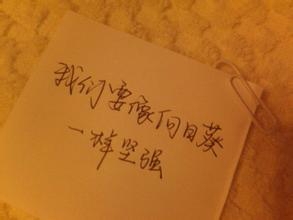 我们要像向日葵
一样坚强